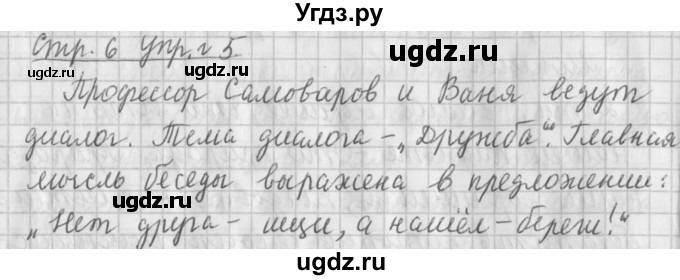 Угдз.ру
Стр. 6 упр. г 5.
Профессор Самоваров и Ваня ведут
диалог. Тема диалога – „Дружба“. Главная
мысль беседы выражена в предложении:
„Нет друга – ищи, а нашёл – береги!“
ugdz.ru ugdz.ru ugdz.ru
ugdz.ru ugdz.ru
ugdz.ru ugdz.ru
Угдз.ру